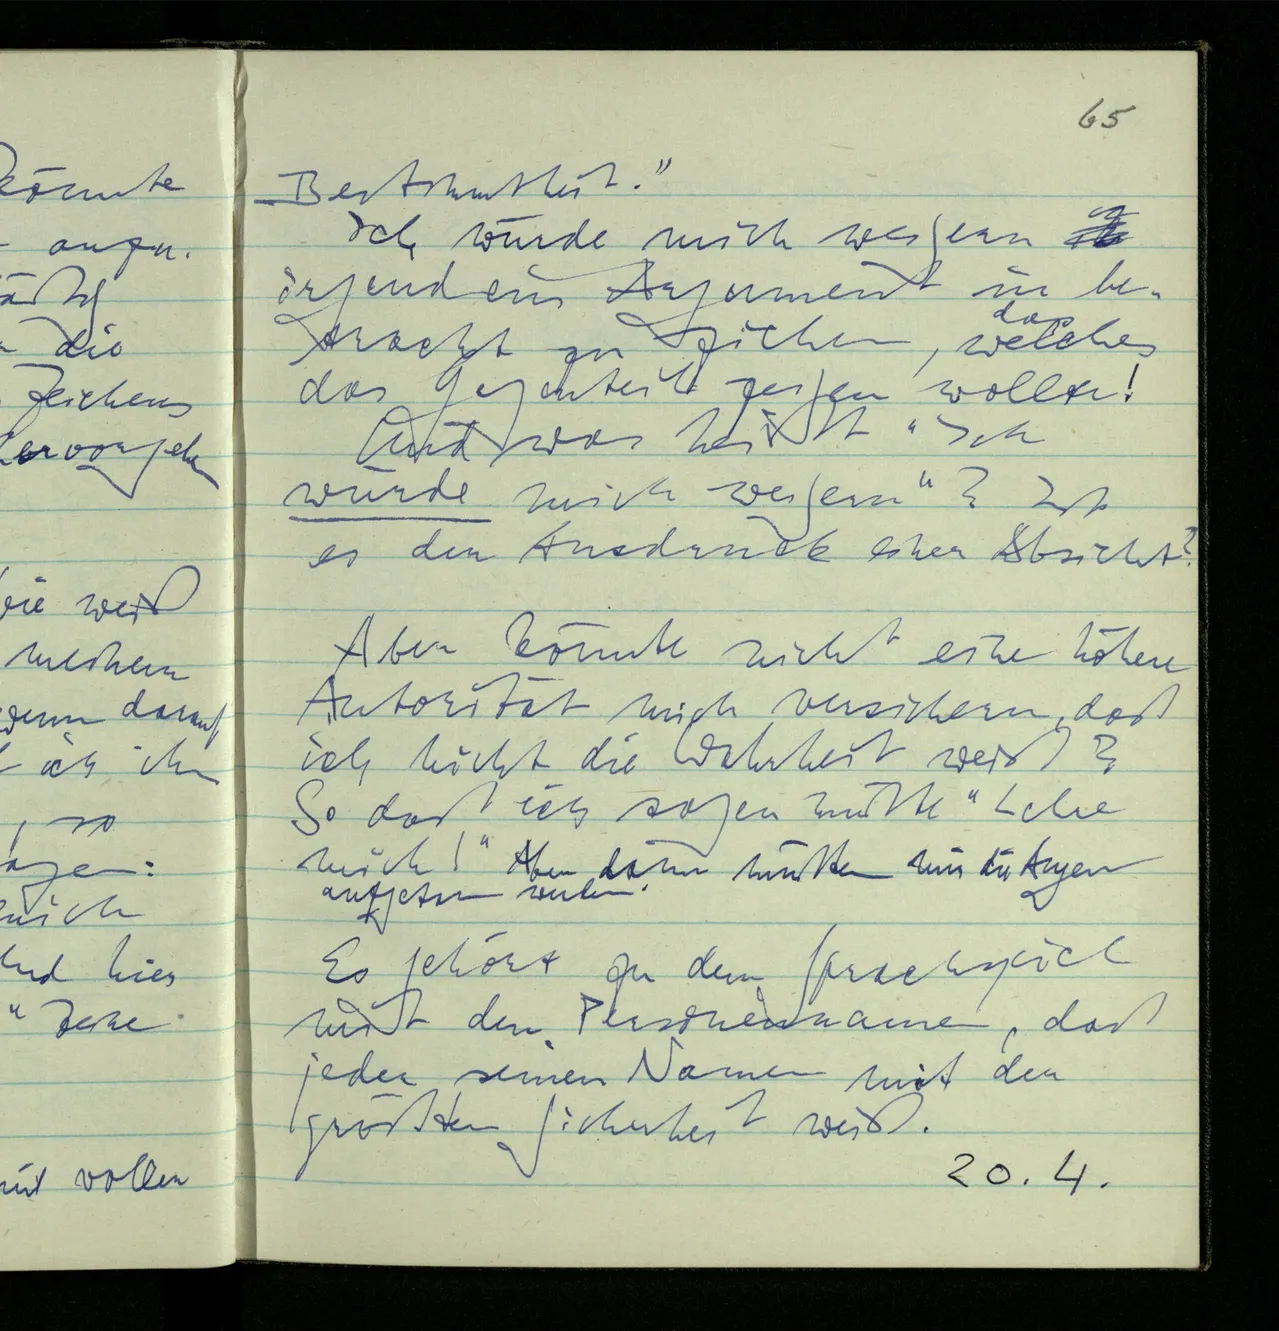 könnte
angen.
die
Zeichens
hervorgeh
wie weiß
meinem
wenn darauf
ich ihn
, so
sagen:
mich
Und hier
" Deine
mit vollen
65
Bestimmtheit."
Ich würde mich weigern
irgend ein Argument in be-
tracht zu ziehen, welches
das
das Gegenteil zeigen wollte!
Und was heißt "Ich
würde mich weigern"? Ist
es der Ausdruck einer Absicht?
Aber könnte nicht eine höhere
Autorität mich versichern, daß
ich nicht die Wahrheit weiß?
So daß ich sagen müßte "Lehre
mich!" Aber dann müßten mir die Augen
aufgetan werden.
Es gehört zu dem Sprachspiel
mit den Personennamen, daß
jeder seinen Namen mit der
größten Sicherheit weiß.
20.4.